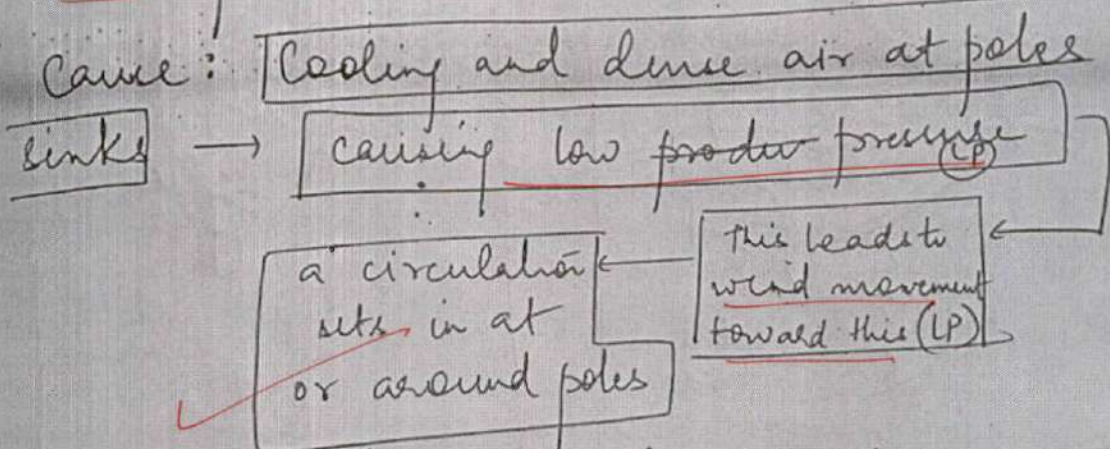 Cause: Cooling and dense air at poles
sinks → causing low produ pressure (LP)
This leads to
wind movement
toward this (LP)
a circulation
sets in at
or around poles